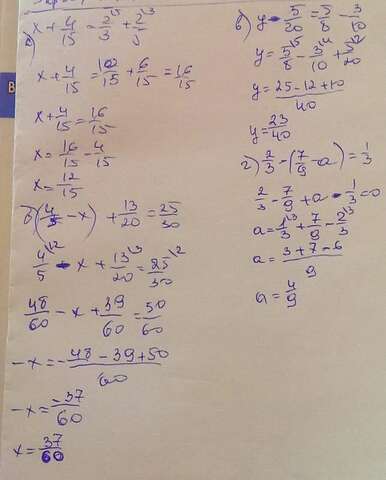 а) x + 4/15 = 2/3 ⁵ + 2/5 ³
x + 4/15 = 10/15 + 6/15 = 16/15
x + 4/15 = 16/15
x = 16/15 - 4/15
x = 12/15
б) (4/5 - x) + 13/20 = 25/30
4/5 ¹² - x + 13/20 ³ = 25/30 ²
48/60 - x + 39/60 = 50/60
-x = -48 - 39 + 50/60
-x = -37/60
x = 37/60
в) y - 5/20 = 5/8 - 3/10
y = 5/8 ⁵ - 3/10 ⁴ + 5/20 ²
y = 25 - 12 + 10/40
y = 23/40
г) 2/3 - (7/9 - a) = 1/3
2/3 - 7/9 + a - 1/3 = 0
a = 1/3 ³ + 7/9 - 2/3 ³
a = 3 + 7 - 6/9
a = 4/9